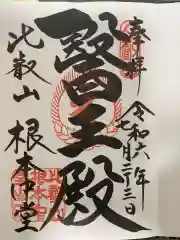 奉拝
令和六年
月二十三日
醫王殿
比叡山
根本中堂